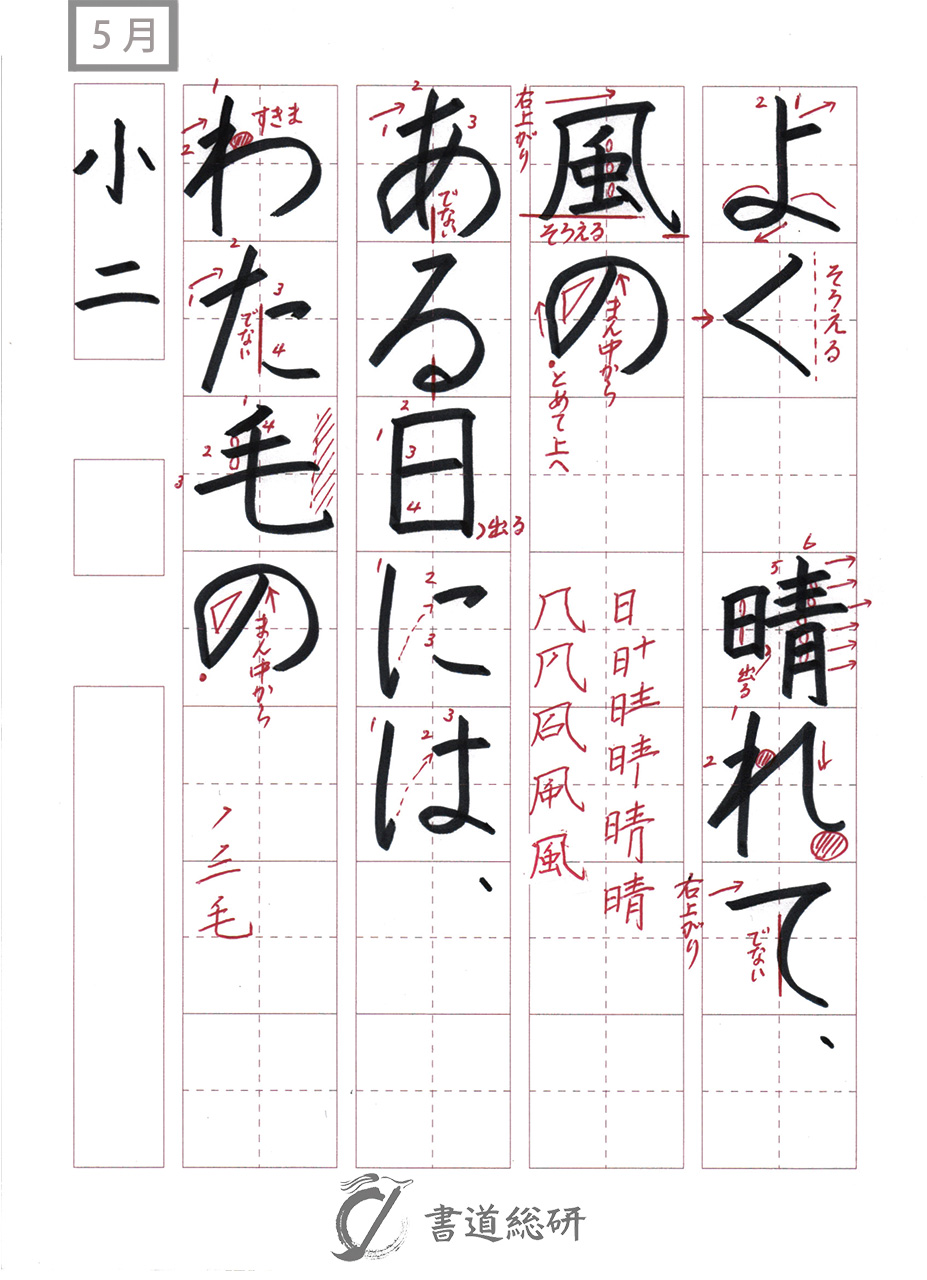 5月
よく 晴れて、
風の
ある日には、
わた毛の
小二
そろえる
出る
右上がり
でない
右上がり
そろえる
まん中から
とめて上へ
日
晴
風
でない
出る
すきま
でない
まん中から
毛
書道総研